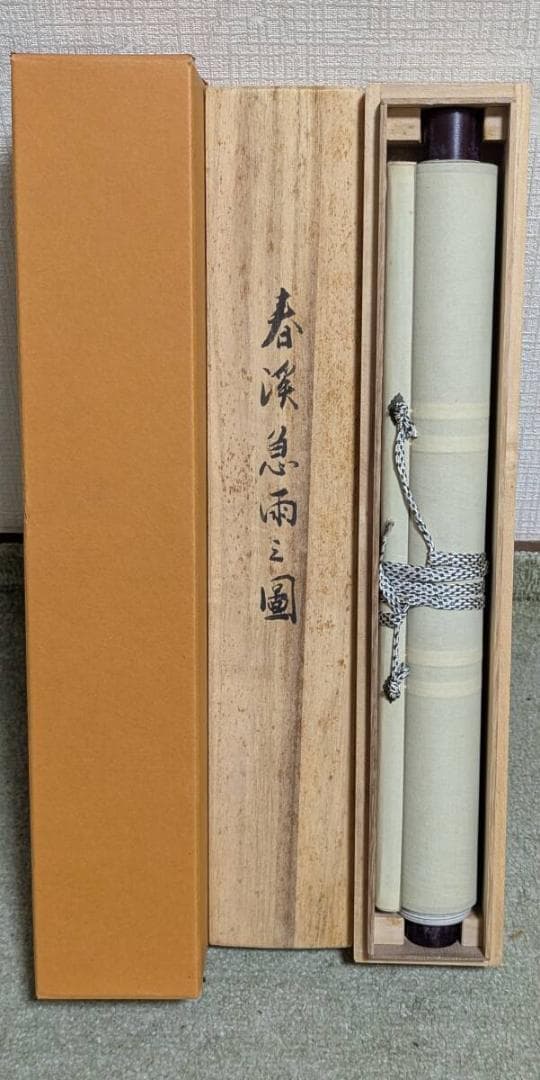 春溪急雨之圖